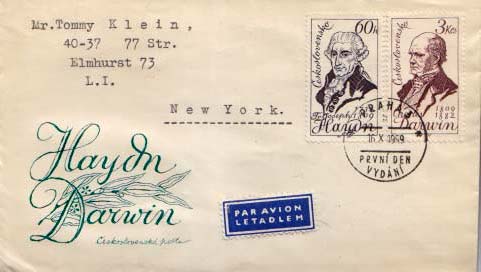 Mr.Tommy Klein,
40-37 77 Str.
Elmhurst 73
L.I.
New York.
60h
Československo
Fr. Joseph
1809
Haydn
3Kčs
Československo
1809
1882
Charles
Darwin
PRAHA 1
16.X.1959
PRVNÍ DEN
VYDÁNÍ
Haydn
Darwin
Československá pošta
PAR AVION
LETADLEM